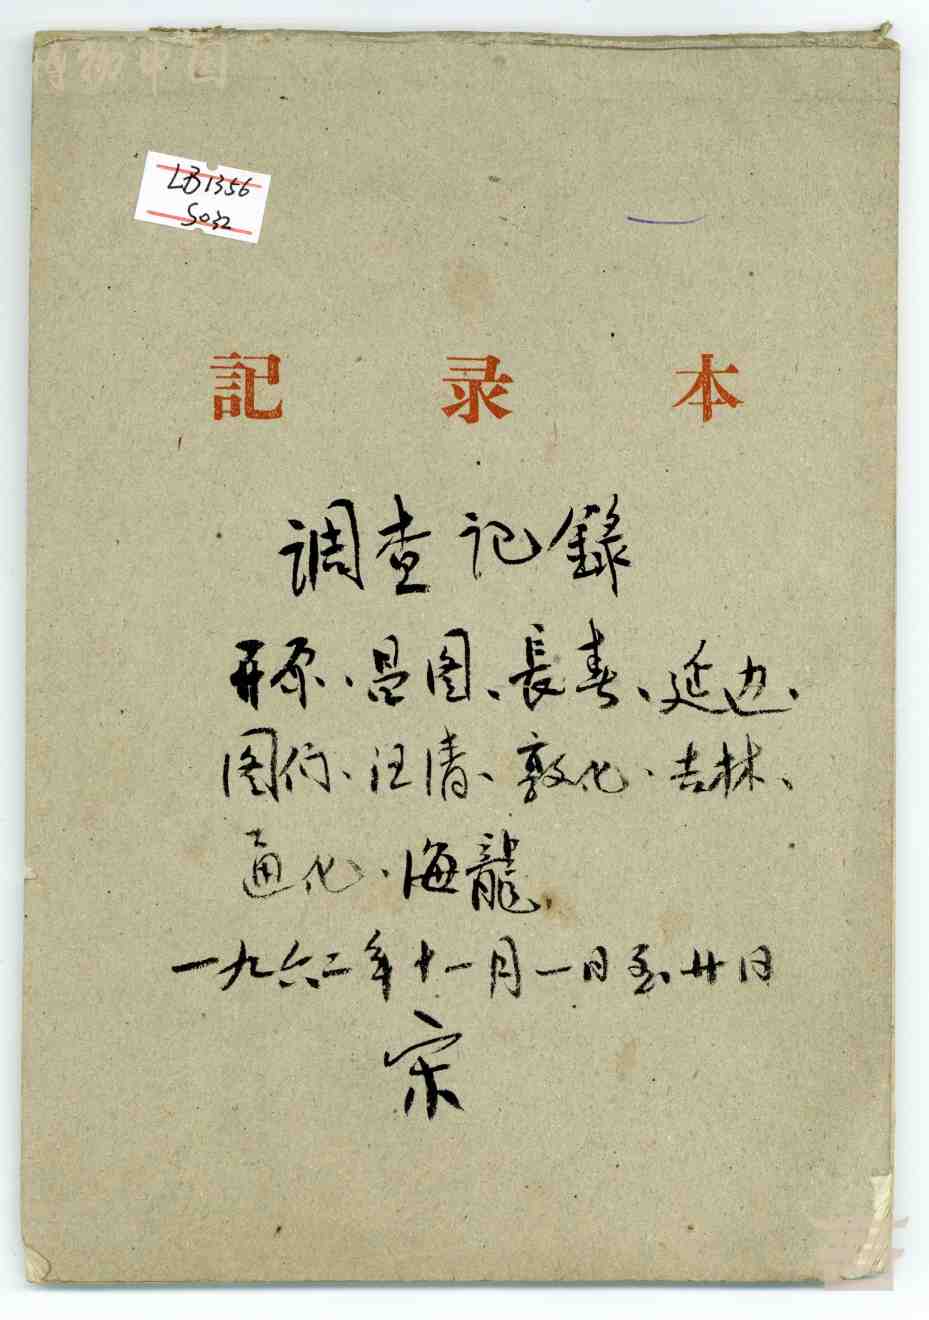 博物中国
LB1356
S032
記录本
调查记錄
开原、昌图、長春、延边、
图们、汪清、敦化、吉林、
通化、海龍
一九六二年十一月一日至廿日
宋